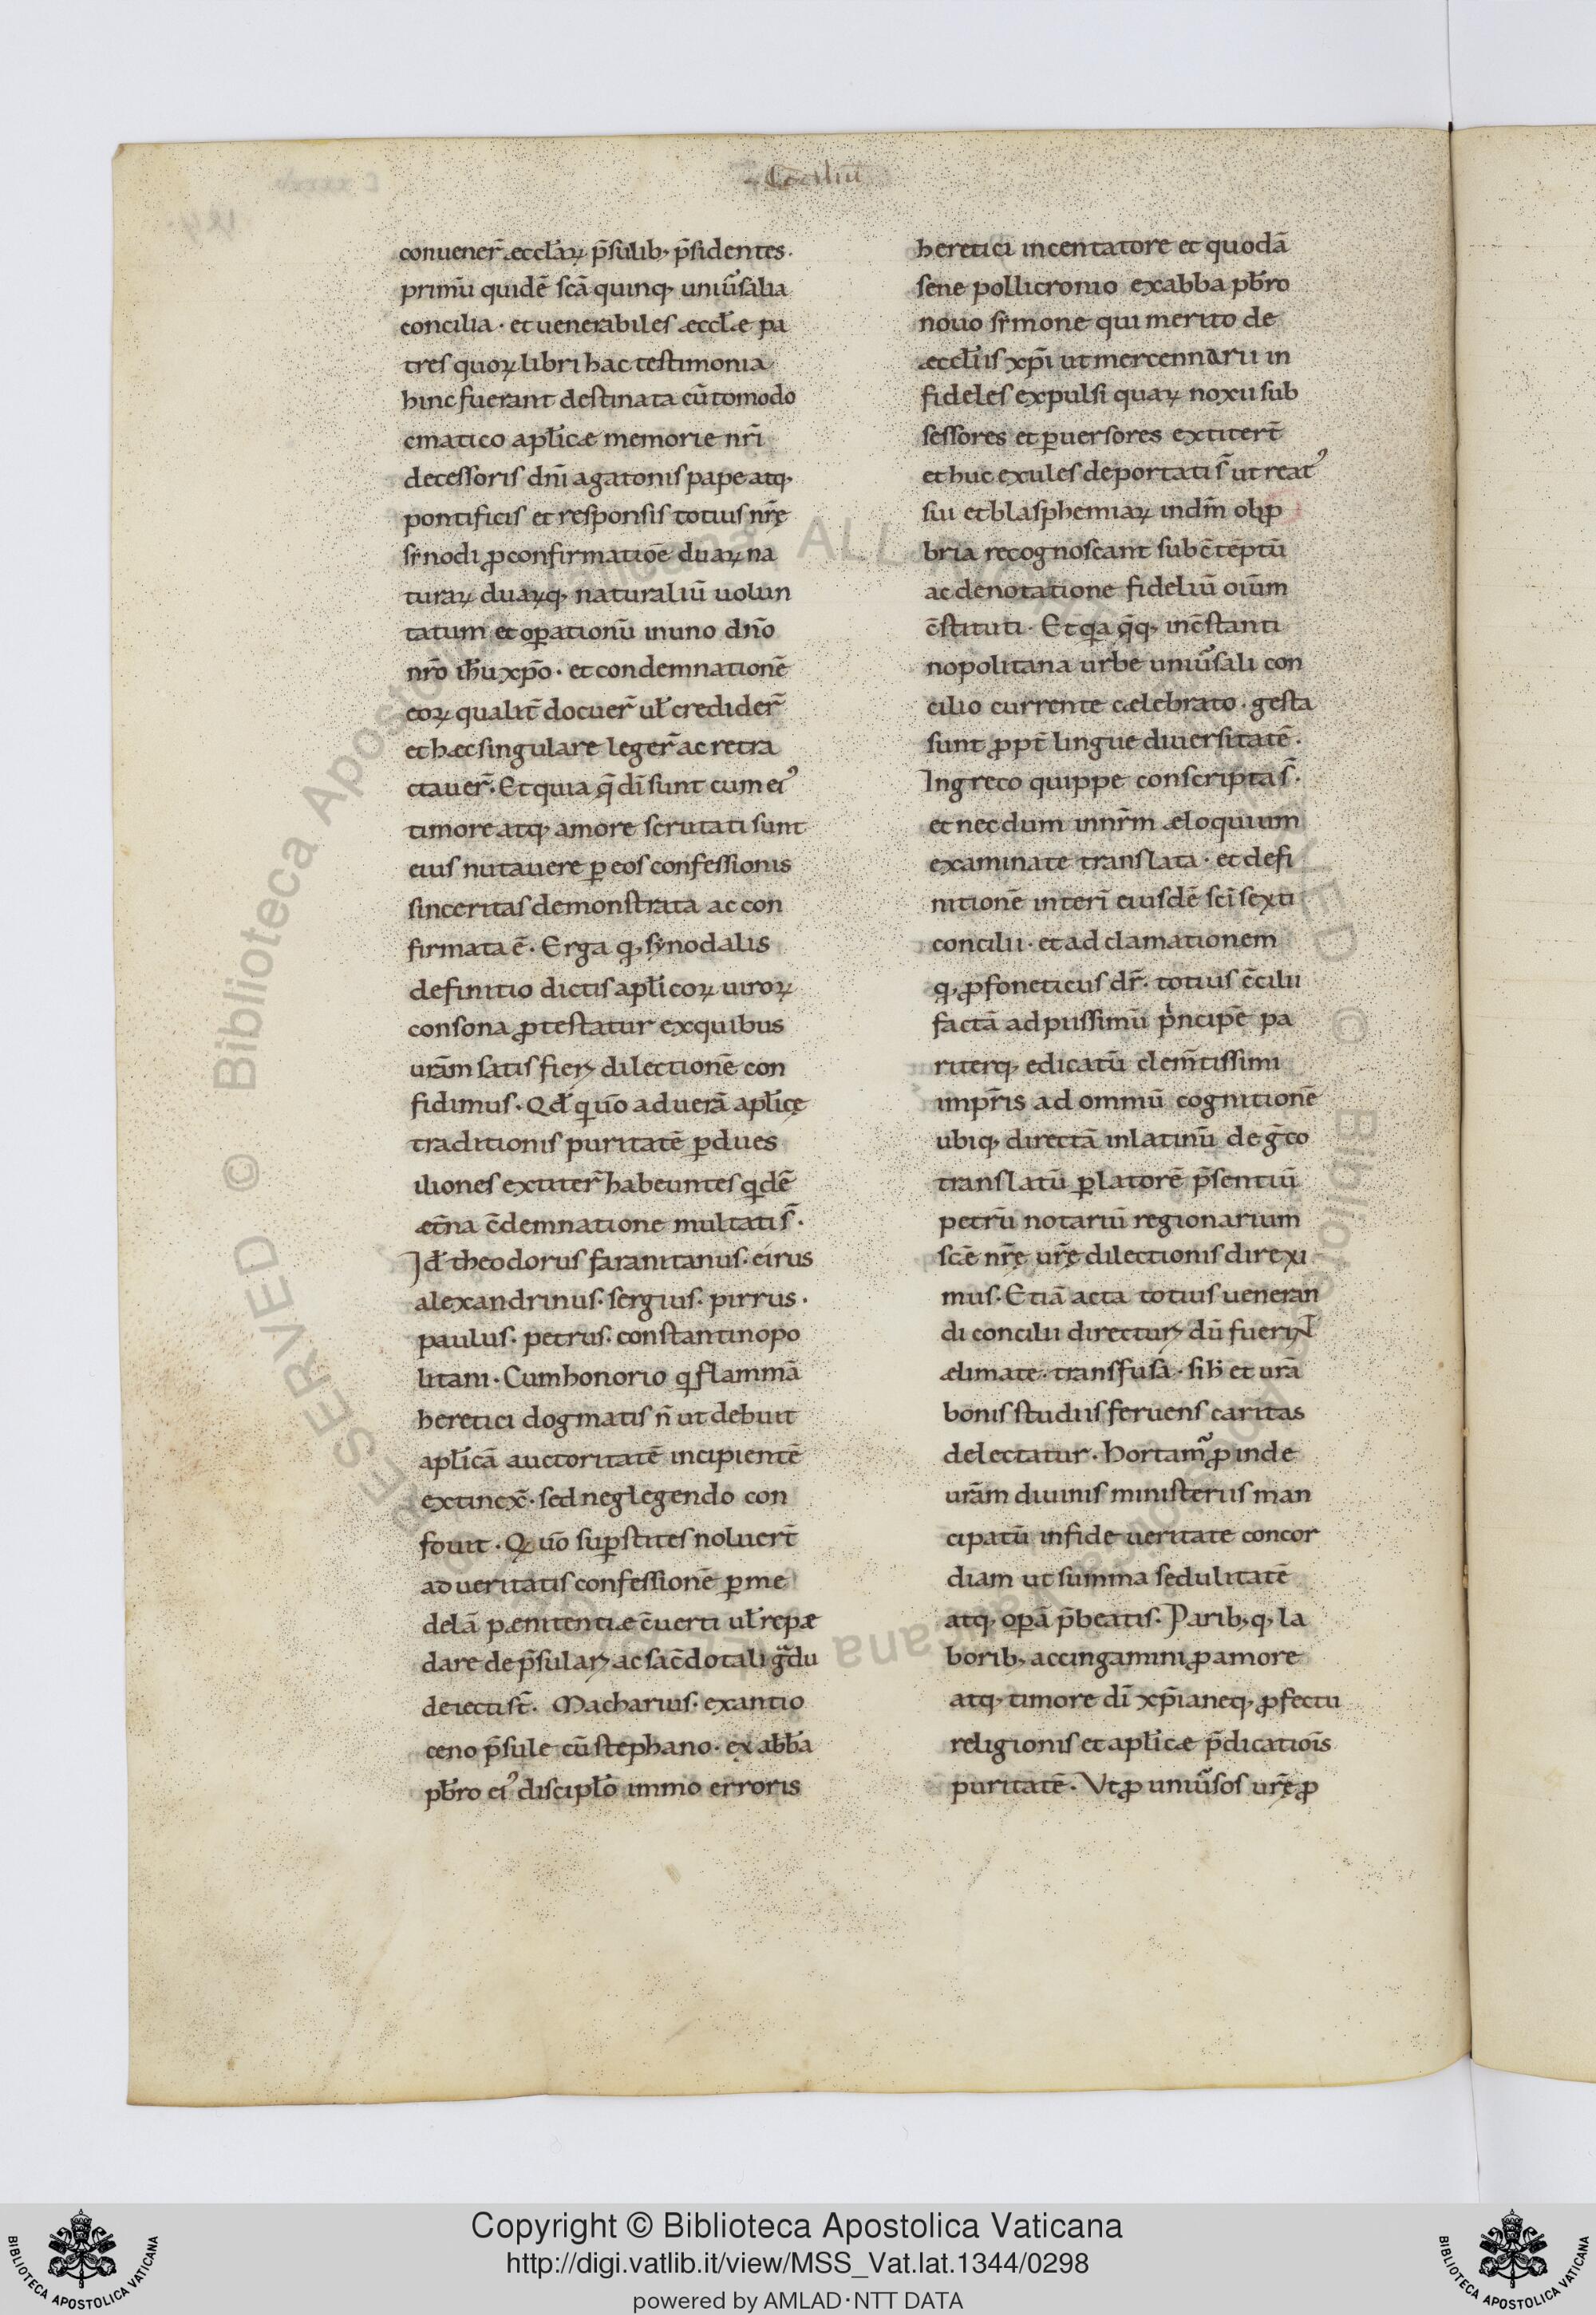 Cōciliū
conuener̄ æccl̄aꝝ p̄sulib; p̄sidentes.
primū quidē scā quinq; uniūsalia
concilia · et uenerabiles æccl̄æ pa
tres quoꝝ libri hac testimonia
hinc fuerant destinata cū tomo do
cmatico apl̄icæ memorie nr̄i
decessoris dn̄i agatonis pape atq;
pontificis et responsis totius nr̄ę
sr̄nodi ꝓ confirmatiōe duaꝝ na
turaꝝ duaꝝq; naturaliū uolun
tatum et oꝑationū in uno dn̄o
nr̄o ih̄u xp̄o · et condemnationē
eoꝝ qualit̄ docuer̄ ul̄ credider̄
et hæc singulare leger̄ ac retra
ctauer̄. Et quia q̄ dī sunt cum eiꝰ
timore atq; amore scrutati sunt
eius nutauere ꝑ eos confessionis
sinceritas demonstrata ac con
firmata ē. Erga q; synodalis
definitio dictis apl̄icoꝝ uiroꝝ
consona ꝓtestatur ex quibus
urām satis fieꝝ dilectionē con
fidimus. Qd̄ qi uō aduerā apl̄icę
traditionis puritatē ꝑdues
iliones extiter̄ habeuntes qidē
æt̄na c̄demnatione multati s̄.
Id̄ theodorus faranitanus. cirus
alexandrinus. sergius. pirrus.
paulus. petrus. constantinopo
litani. Cum honorio qi flammā
heretici dogmatis n̄ ut debuit
apl̄icā auctoritatē incipientē
extincx̄. sed neglegendo con
fouit. Qꝝ uō suꝑstites noluer̄t
ad ueritatis confessionē ꝑ me
delā pænitentiæ c̄uerti ul̄ repæ
dare de p̄sulaꝝ ac sac̄dotali gͣdu
deiecti st̄. Macharius. ex antio
ceno p̄sule cū stephano. ex abb̄a
pb̄ro eiꝰ discipl̄o immo erroris
heretici incentatore et quodā
sene pollicronio ex abba pb̄ro
nouo sr̄mone qui merito de
æccl̄iis xp̄i ut mercennarii in
fideles expulsi quaꝝ noxii sub
sessores et ꝑuersores extiter̄t
et huc exules deportati s̄ ut reatꝰ
sui et blasphemiaꝝ in dm̄ obp
bria recognoscant sub c̄tēptū
ac denotatione fideliū oiūm
c̄stituti. Et qia q̄q; in c̄stanti
nopolitana urbe uniūsali con
cilio currente cælebrato. gesta
sunt ꝓpt̄ lingue diuersitatē.
In greco quippe conscripta s̄.
et nec dum in nr̄m æloquium
examinate translata. et defi
nitionē interī eiusdē sc̄i sexti
concilii. et ad clamationem
q; ꝓsfoneticus dr̄. totius c̄cilii
factā ad piissimū pⁱncipē pa
riterq; edicatū clem̄tissimi
impr̄is ad omniū cognitionē
ubiq; directā in latinū de gr̄co
translatū ꝑ latorē p̄sentiū
petrū notariū regionarium
scē nr̄ę ur̄ę dilectionis direxi
mus. Etiā acta totius ueneran
di concilii directuꝝ dū fuerint
ælimate. transfusā. sib̄ et urā
bonis studiis feruens caritas
delectatur. hortam̃ ꝓinde
urām diuinis ministeriis man
cipatū in fide ueritate concor
diam ut summa sedulitatē
atq; oꝑā p̄beatis. Parib; q; la
borib; accingamini ꝓ amore
atq; timore dī xp̄ianeq; ꝓfectu
religionis et apl̄icæ p̄dicatiōis
puritatē. Vt ꝓ uniūsos urę ꝓ
Copyright © Biblioteca Apostolica Vaticana
http://digi.vatlib.it/view/MSS_Vat.lat.1344/0298
powered by AMLAD·NTT DATA
BIBLIOTECA APOSTOLICA VATICANA
BIBLIOTECA APOSTOLICA VATICANA